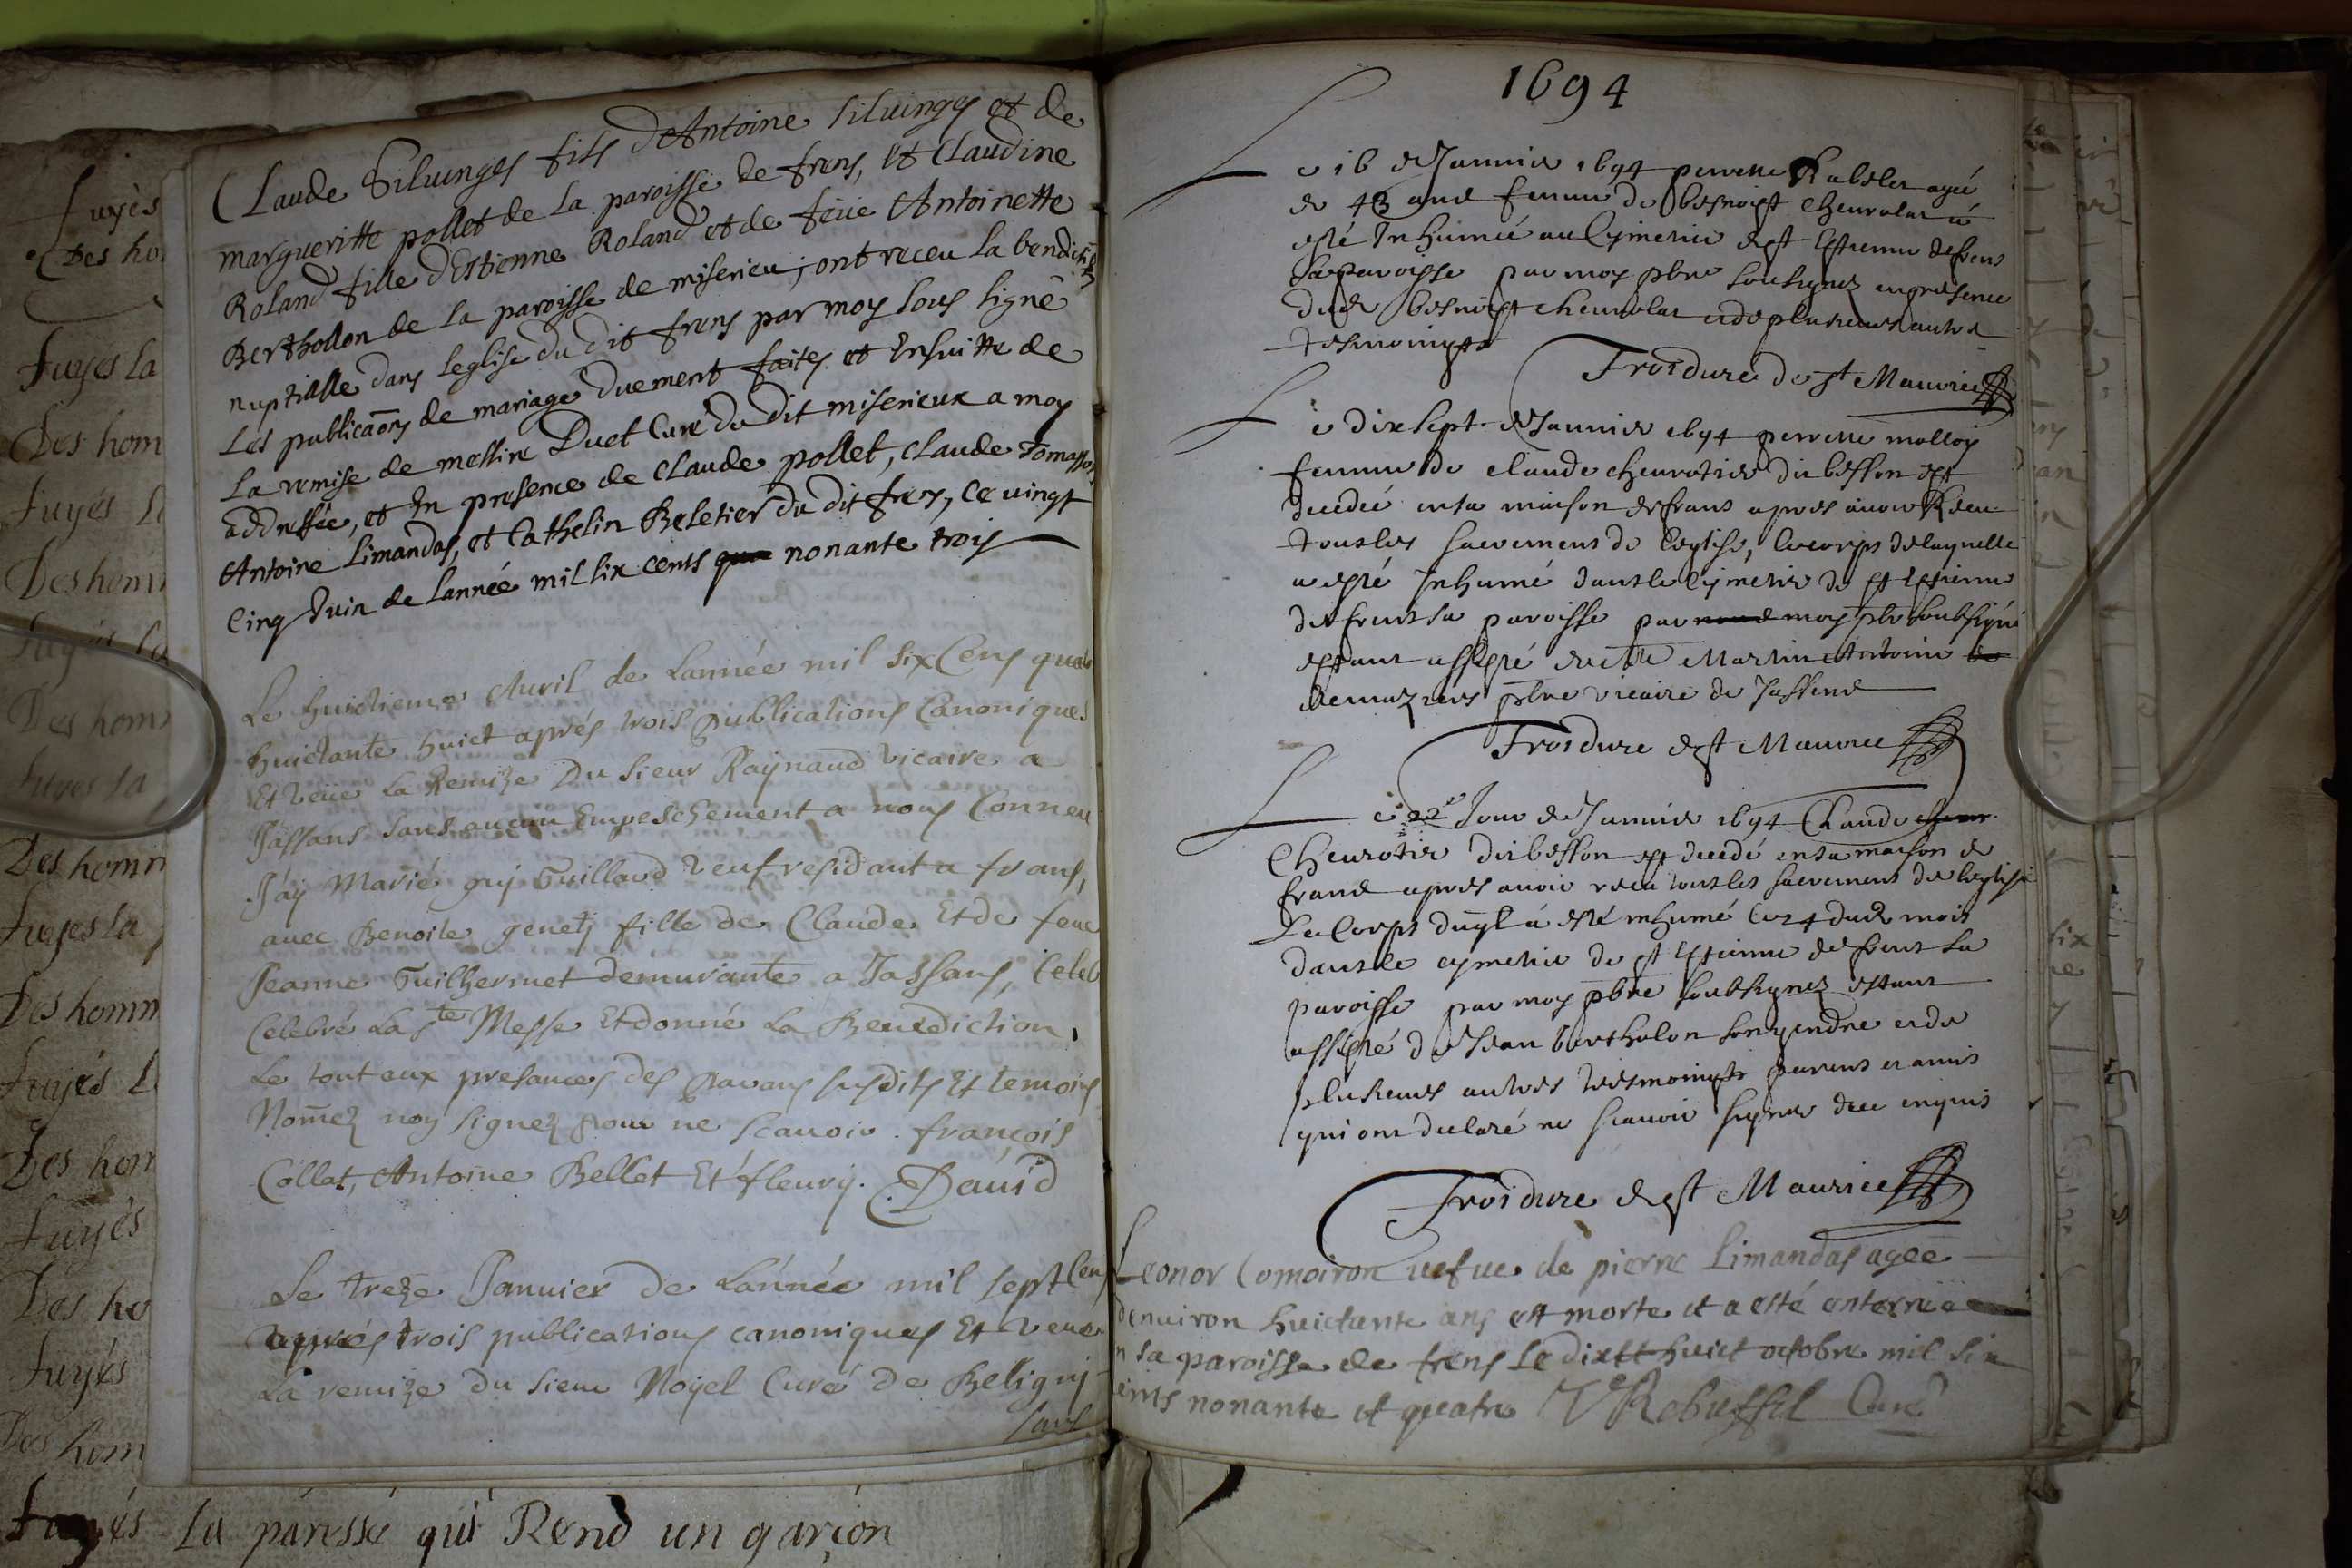 Claude Siluinges fils d'Antoine siluinges et de
margueritte pollet de la paroisse de frens, et Claudine
Roland fille d'Estienne Roland et de feüe Antoinette
Berthollon de la paroisse de miserieu; ont receu la
nuptialle dans leglise du dit frens par moy sous signé
Les publicaõns de mariage duement faites et Ensuitte de
La remise de messire Duet Curé du dit miserieux a moy
addressée, et In presence de Claude pollet, Claude Tomasson
Antoine Limandas, et Cathelin Beletier du dit frens, ce vingt
Cinq Juin de Lannée mil six cents nonante trois
Le huictieme Auril de Lannée mil six Cens quatr
huictante huict aprés trois publications Canoniques
Et veüe la Remize Du sieur Raynaud vicaire a
Jassans sans aucun Empeschement a nous Conneu
J'ay Marié guy Guillaud veuf residant a frans,
auec Benoite genetj fille de Claude Et de feue
Jeanne Guilhermet demurante a Jassans,
Celebré La ste Messe Et donné La Benediction,
Le tout aux presances des parans susdits Et temoins
Nom̃ez non signez pour ne scauoir. françois
Collat, Antoine Bellet Et fleury. David
Le treze Januier de Lánnée mil sept Cens
aprrés trois publications canoniques Et veue
La remize du sieur Noyel Curé de Beligny
sans
1694
Le 16 de Januier 1694 perrette agée
de 48 ans femme de benoist cheurolat à
esté Inhumée au Cymetire de st Estienne de frens
sa paroisse par moy pbre soubsignez en presence
dud benoist cheurolat et de plusieurs autres
tesmoingts
Froidure de st Maurice
Le dix sept de Januier 1694 perrette molloy
femme de claude cheurotier dit besson est
decedée en sa maison de frans apres auoir Receu
tous les sacrements de l'eglise, le corps de laquelle
a esté Inhumé dans le cymetire de st Estienne
de frens sa paroisse par moy pbr soubsigné
estant assisté de Mre Martin Antoine
pbre vicaire de Jassens
Froidure de st Maurice
Le 22e Jour de Januier 1694 Claude
Cheurotier dit besson est decedé en sa maison de
frans apres auoir receu tous les sacrements de l'eglise
Le Corps duql à esté inhumé le 24 dud mois
dans le cymetire de st Estienne de frens sa
paroisse par moy pbre soubsignez estant
assisté de Jean bertholon son gendre et de
plusieurs autres tesmoingts parens et amis
qui ont declaré ne scauoir signer de ce enquis
Froidure de st Maurice
Leonor Comoiron uefue de pierre Limandas agée
denuiron huictante ans est morte et a esté enterrée
n sa paroisse de frens Le dixtt huict octobre mil six
ents nonante et quatre V Rebuffel Curé
fuyés
Des ho
fuyés la
Des hom
fuyés L
Des homm
fuyés la
Des homm
fuyes la
Des homm
fuyes la
Des homm
fuyés L
Des hom
fuyés
Des ho
fuyés
Des hom
fuyés La páressé qui Rend un garçon